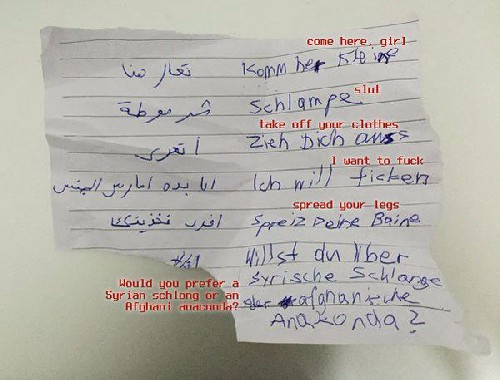 come here, girl
تعال هنا Komm her kleine
slut
شرموطة Schlampe
take off your clothes
اتعري Zieh Dich auss
I want to fuck
انا بده امارس الجنس Ich will ficken
spread your legs
فخذيك Spreiz Deine Baine
Willst du liber
Syrische Schlange
Would you prefer a
Syrian schlong or an
Afghani anaconda?
oder afghanische
Anakonda?